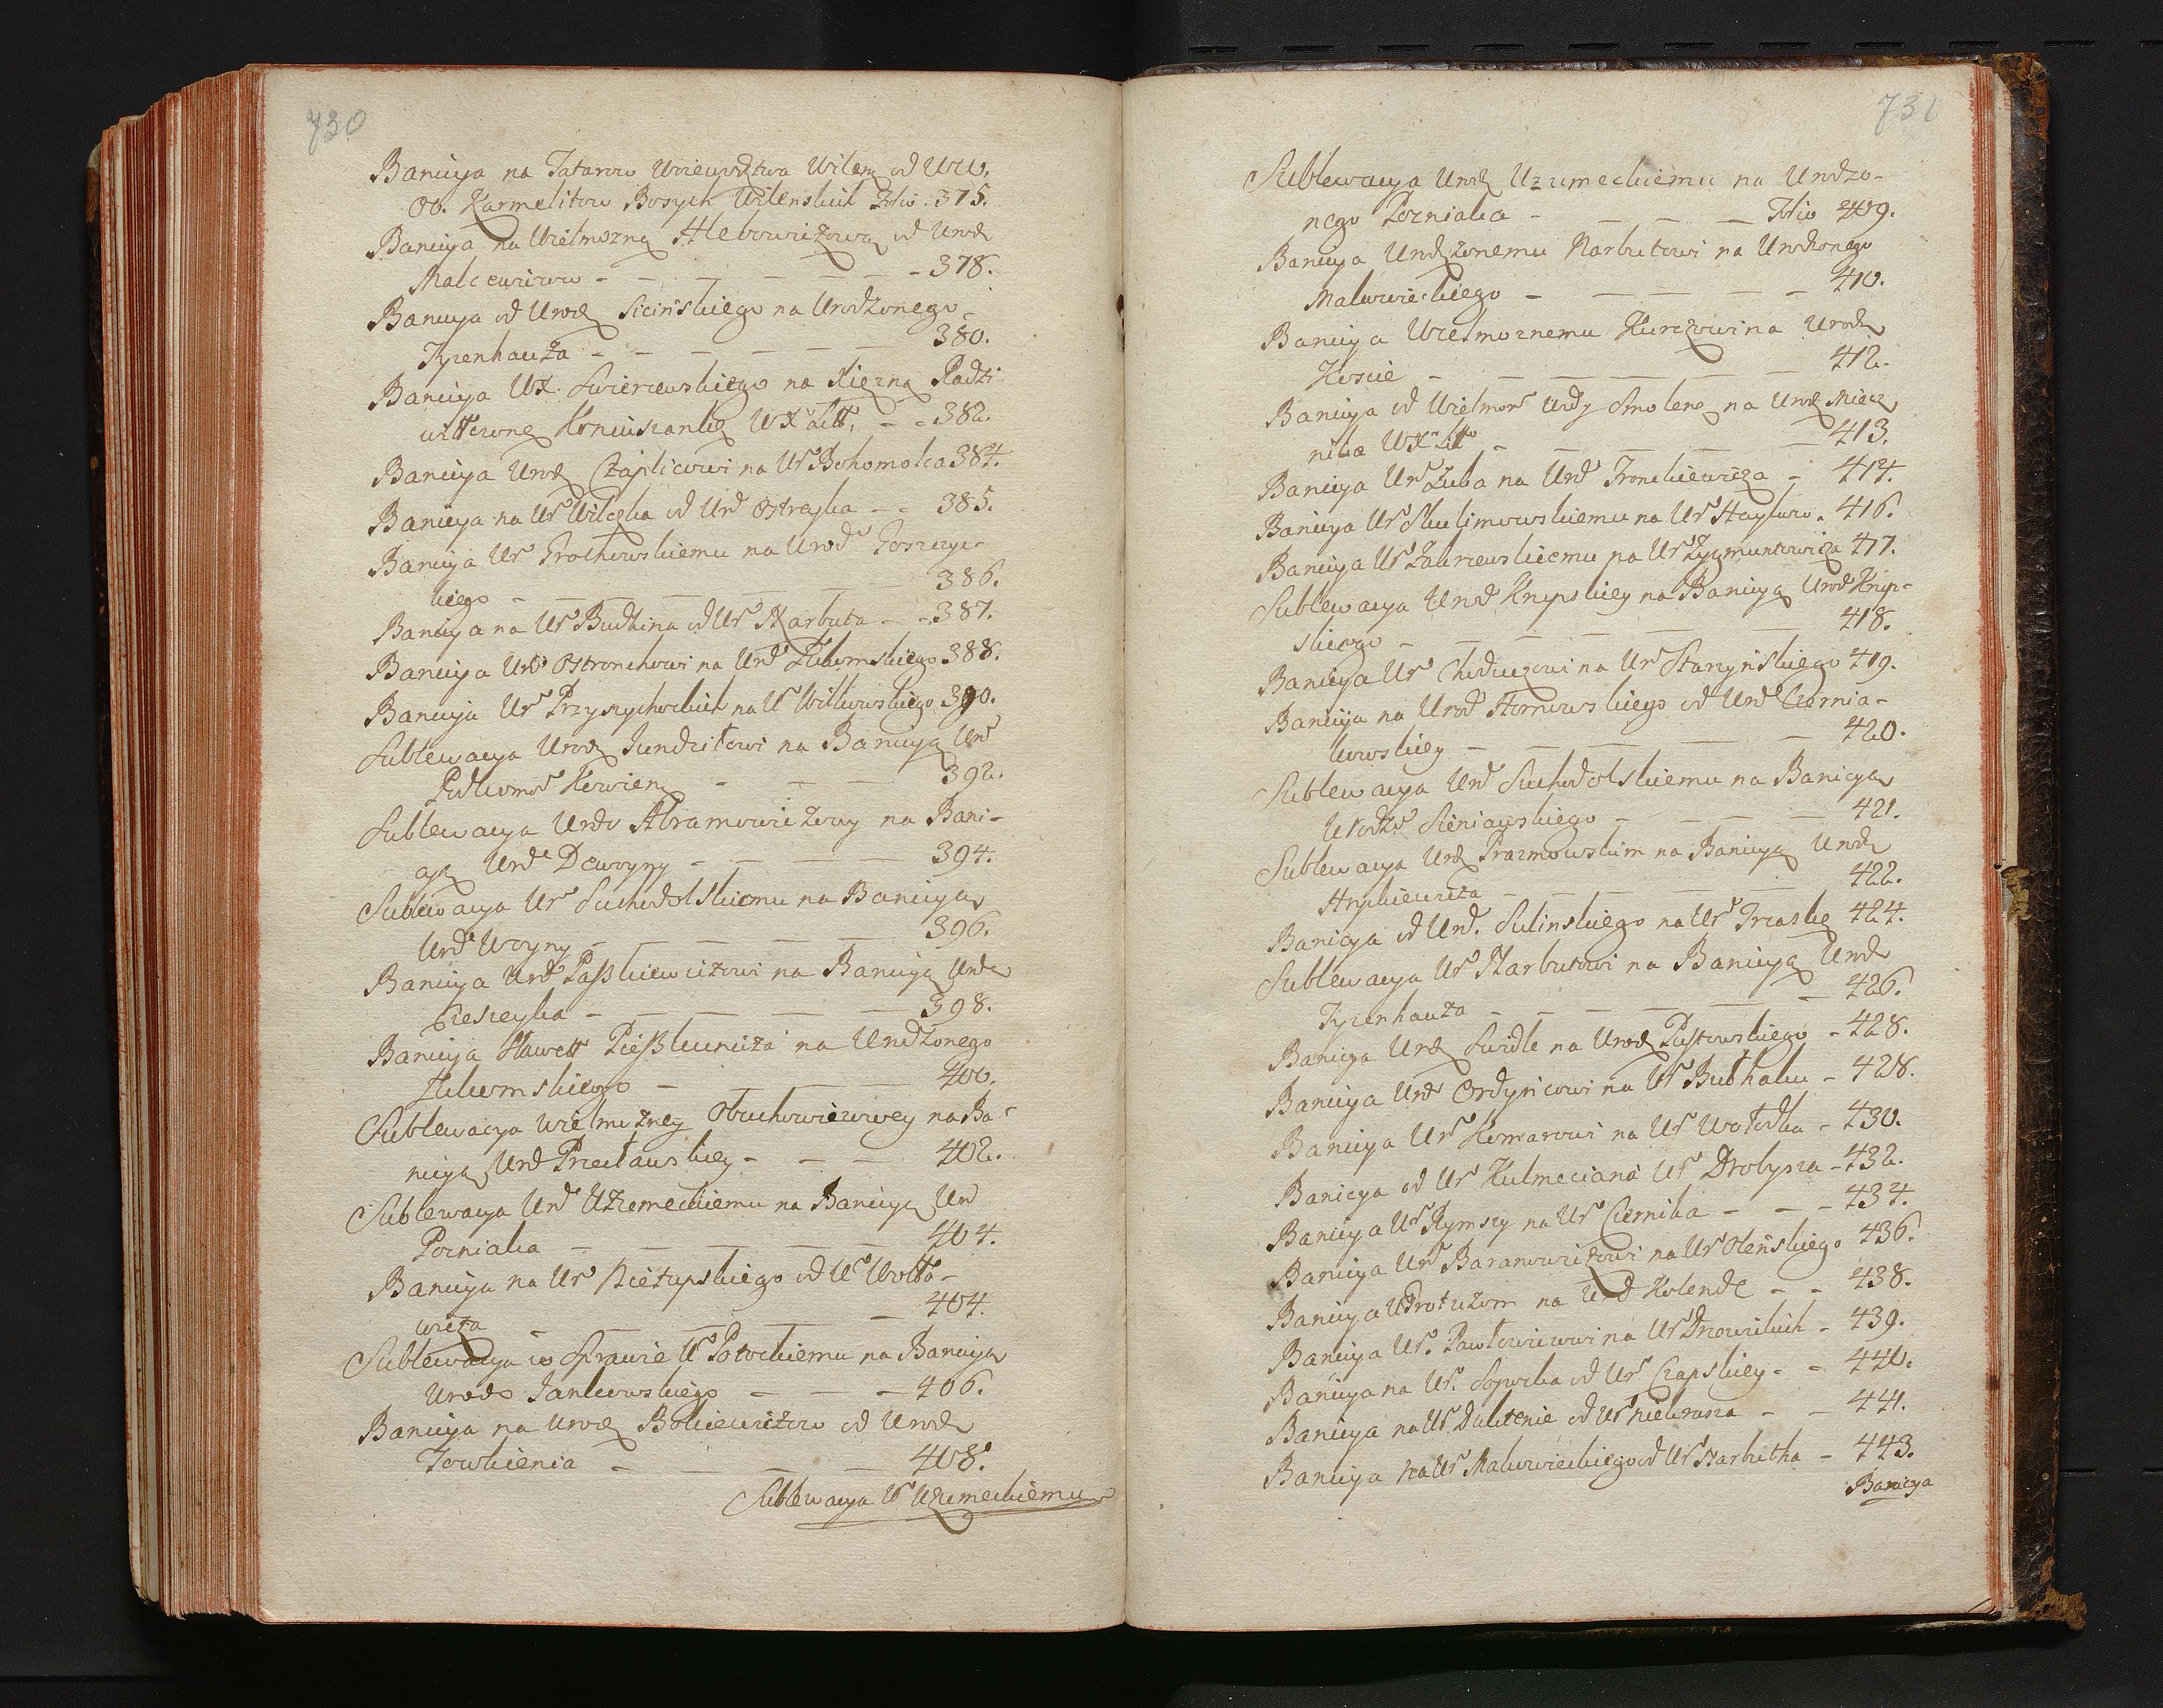 730
Banicya na Tatarow Woiewodztwa Wilenẜ od WW.
OO. Karmelitow Bosych Wilenskich Folio. 375.
Banicya na Wielmożną Hlebowiczową od Urodz
Malcewiczow - - - - - - 378.
Banicya od Urodz Sicińskiego na Urodzonego
Tyzenhauza - - - - - - 380.
Banicya WX. Swierzewskiego na Xiężną Radzi
wiłłowną Koniuszankę WXLitt. - - 382.
Banicya Urodz Czaplicowi na Ur Bohomolca 384.
Banicya na Ur Wilczka od Urd Ostreyka - - 385.
Banicya Ur Grochowskiemu na Urod Goszczyc-
kiego - - - - - - 386.
Banicya na Ur Budkina od Ur Narbuta - - 387.
Banicya Urd Ostronchowi na Urd Hukomskiego 388.
Banicya Ur Przysychockich na Ur Witkowskiego 390.
Sublewacya Urodz Jundziłowi na Banicyą Urd
Podkomor Kowien - - - 392.
Sublewacya Urdo Abramowiczowy na Bani-
cyą Urd Dewoyny - - - - 394.
Sublewacya Ur Suchodolskiemu na Banicyą
Urd Woyny - - - - - 396.
Banicya Urd Paszkiewiczowi na Banicyą Urdz
Czeszeyka - - - - - 398.
Banicya Sławett Pieszkunciza na Urodzonego
Hukomskiego - - - - 400.
Sublewacya Wielmożney Obuchowiczowey na Ba-
nicyą Urd Przecławskiey - - - 402.
Sublewacya Urd Użumeckiemu na Banicyą Urd
Poźniaka - - - - - 404.
Banicya na Ur Kietupskiego od Ur Wołło-
wicza - - - - - - 404.
Sublewacya w Sprawie Ur Potockiemu na Banicyą
Urodo Jankowskiego - - - 406.
Banicya na Urodz Bohiewiczow od Urodz
Jowkienia - - - - 408.
Sublewacya Ur Uzumeckiemu
731
Sublewacya Urodz Uzumeckiemu na Urodzo-
nego Pozniaka - - - - Folio 409.
Banicya Urodzonemu Narbutowi na Urodzonego
Makowieckiego - - - - - 410.
Banicya Wielmoznemu Kurczowi na Urodz
Koscię - - - - - - 412.
Banicya od Wielmoz Urdz Smolenẜ na Urodz Miecz
nika WXLitt - - - - - 413.
Banicya Ur Zuba na Urd Fronckiewicza - 414.
Banicya Ur Skulimowskiemu na Ur Hayków. 416.
Banicya Ur Zakrzewskiemu na Ur Zygmuntowicza 417.
Sublewacya Urod Knypskiey na Banicyą Urod Knyp-
skiego - - - - - - 418.
Banicya Ur Choduczowi na Ur Starzyńskiego 419.
Banicya na Urod Hornowskiego od Urd Czernia-
kowskiey - - - - - 420.
Sublewacya Urd Suchodolskiemu na Banicyą
Urodzo Sieniawskiego - - - - 421.
Sublewacya Urdz Prazmowskim na Banicyą Urodz
Hrynkiewicza - - - - - 422.
Banicya od Urd. Sulinskiego na Ur Trzaskę 424.
Sublewacya Ur Narbutowi na Banicyą Urodz
Tyzenhauza - - - - - 426.
Banicya Urdz Swidle na Urodz Pustowskiego - 428.
Banicya Urd Ordyńcowi na Ur Buchaku - 428.
Banicya Ur Komarowi na Ur Wołodka - 430.
Banicya od Ur Kulmeciana Ur Drobysza - 432.
Banicya Ur Rymszy na Ur Czernika - - - 434.
Banicya Ur Baranowiczowi na Ur Oleńskiego 436.
Banicya Urd Protużom na Urd Kolendę - - 438.
Banicya Ur. Pawłowiczowi na Ur Drzewickich - 439.
Banicya na Ur. Sopoćka od Ur Czapskiey - - 440.
Banicya na Ur. Dulkenie od Ur Niekrasza - - 441.
Banicya na Ur Makowieckiego od Ur Narbutka - 443.
Banicya